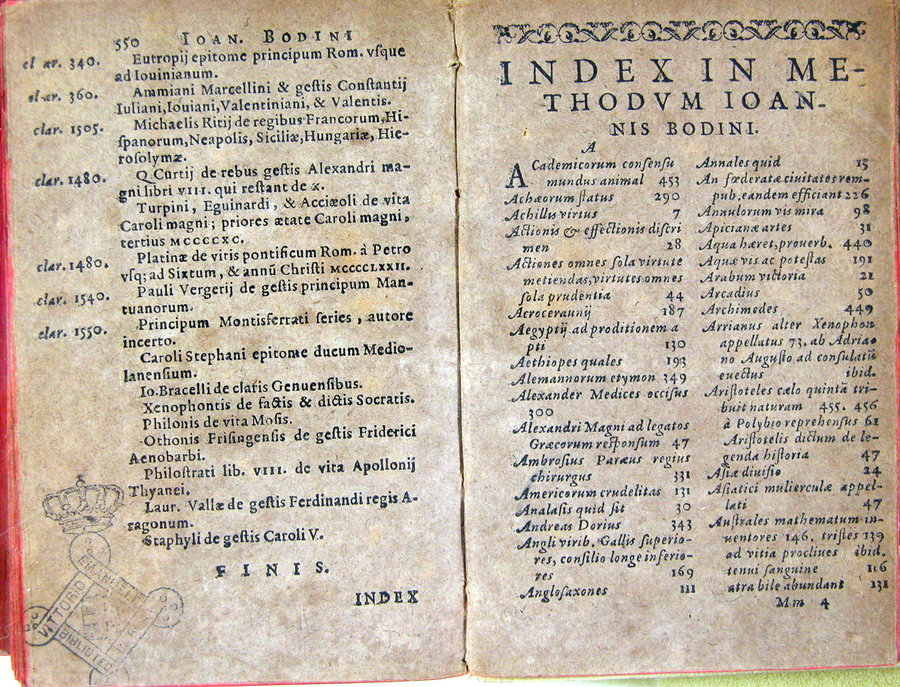 550 IOAN. BODINI
el. ar. 340. Eutropij epitome principum Rom. vsque
ad Iouinianum.
el. ar. 360. Ammiani Marcellini & gestis Constantij
Iuliani, Iouiani, Valentiniani, & Valentis.
clar. 1505. Michaelis Ritij de regibus Francorum, Hi-
spanorum, Neapolis, Siciliæ, Hungariæ, Hie-
rosolymæ.
clar. 1480. Q. Curtij de rebus gestis Alexandri ma-
gni libri VIII. qui restant de X.
Turpini, Eguinardi, & Acciæoli de vita
Caroli magni; priores ætate Caroli magni,
tertius MCCCCXC.
clar. 1480. Platinæ de vitis pontificum Rom. â Petro
vsq; ad Sixtum, & annũ Christi MCCCCLXXII.
clar. 1540. Pauli Vergerij de gestis principum Man-
tuanorum.
clar. 1550. Principum Montisferrati series, autore
incerto.
Caroli Stephani epitome ducum Medio-
lanensium.
Io. Bracelli de claris Genuensibus.
Xenophontis de factis & dictis Socratis.
Philonis de vita Mosis.
Othonis Frisingensis de gestis Friderici
Aenobarbi.
Philostrati lib. VIII. de vita Apollonij
Thyanei.
Laur. Vallæ de gestis Ferdinandi regis A-
ragonum.
Staphyli de gestis Caroli V.
FINIS.
INDEX
VITTORIO EMANUELE
BIBLIOTEC
INDEX IN ME-
THODVM IOAN-
NIS BODINI.
A
ACademicorum consensu
mundus animal 453
Achæorum status 290
Achillis virtus 7
Actionis & effectionis discri
men 28
Actiones omnes sola virtute
metiendas, virtutes omnes
sola prudentia 44
Acroceraunij 187
Aegyptij ad proditionem a
pti 130
Aethiopes quales 193
Alemannorum etymon 349
Alexander Medices occisus
300
Alexandri Magni ad legatos
Græcorum responsum 47
Ambrosius Paræus regius
chirurgus 331
Americorum crudelitas 131
Analasis quid sit 30
Andreas Dorius 343
Angli virib. Gallis superio-
res, consilio longe inferio-
res 169
Anglosaxones 111
Annales quid 15
An fœderatæ ciuitates rem-
pub. eandem efficiant 226
Annulorum vis mira 98
Apicianæ artes 31
Aqua hæret, prouerb. 440
Aquæ vis ac potestas 191
Arabum victoria 21
Arcadius 50
Archimedes 449
Arrianus alter Xenophon
appellatus 73. ab Adria-
no Augusto ad consulatũ
euectus ibid.
Aristoteles cælo quintã tri-
buit naturam 455. 456
à Polybio reprehensus 61
Aristotelis dictum de le-
genda historia 47
Asiæ diuisio 24
Asiatici mulierculæ appel-
lati 47
Australes mathematum in-
uentores 146. tristes 139
ad vitia procliues ibid.
tenui sanguine 116
atra bile abundant 131
Mm 4